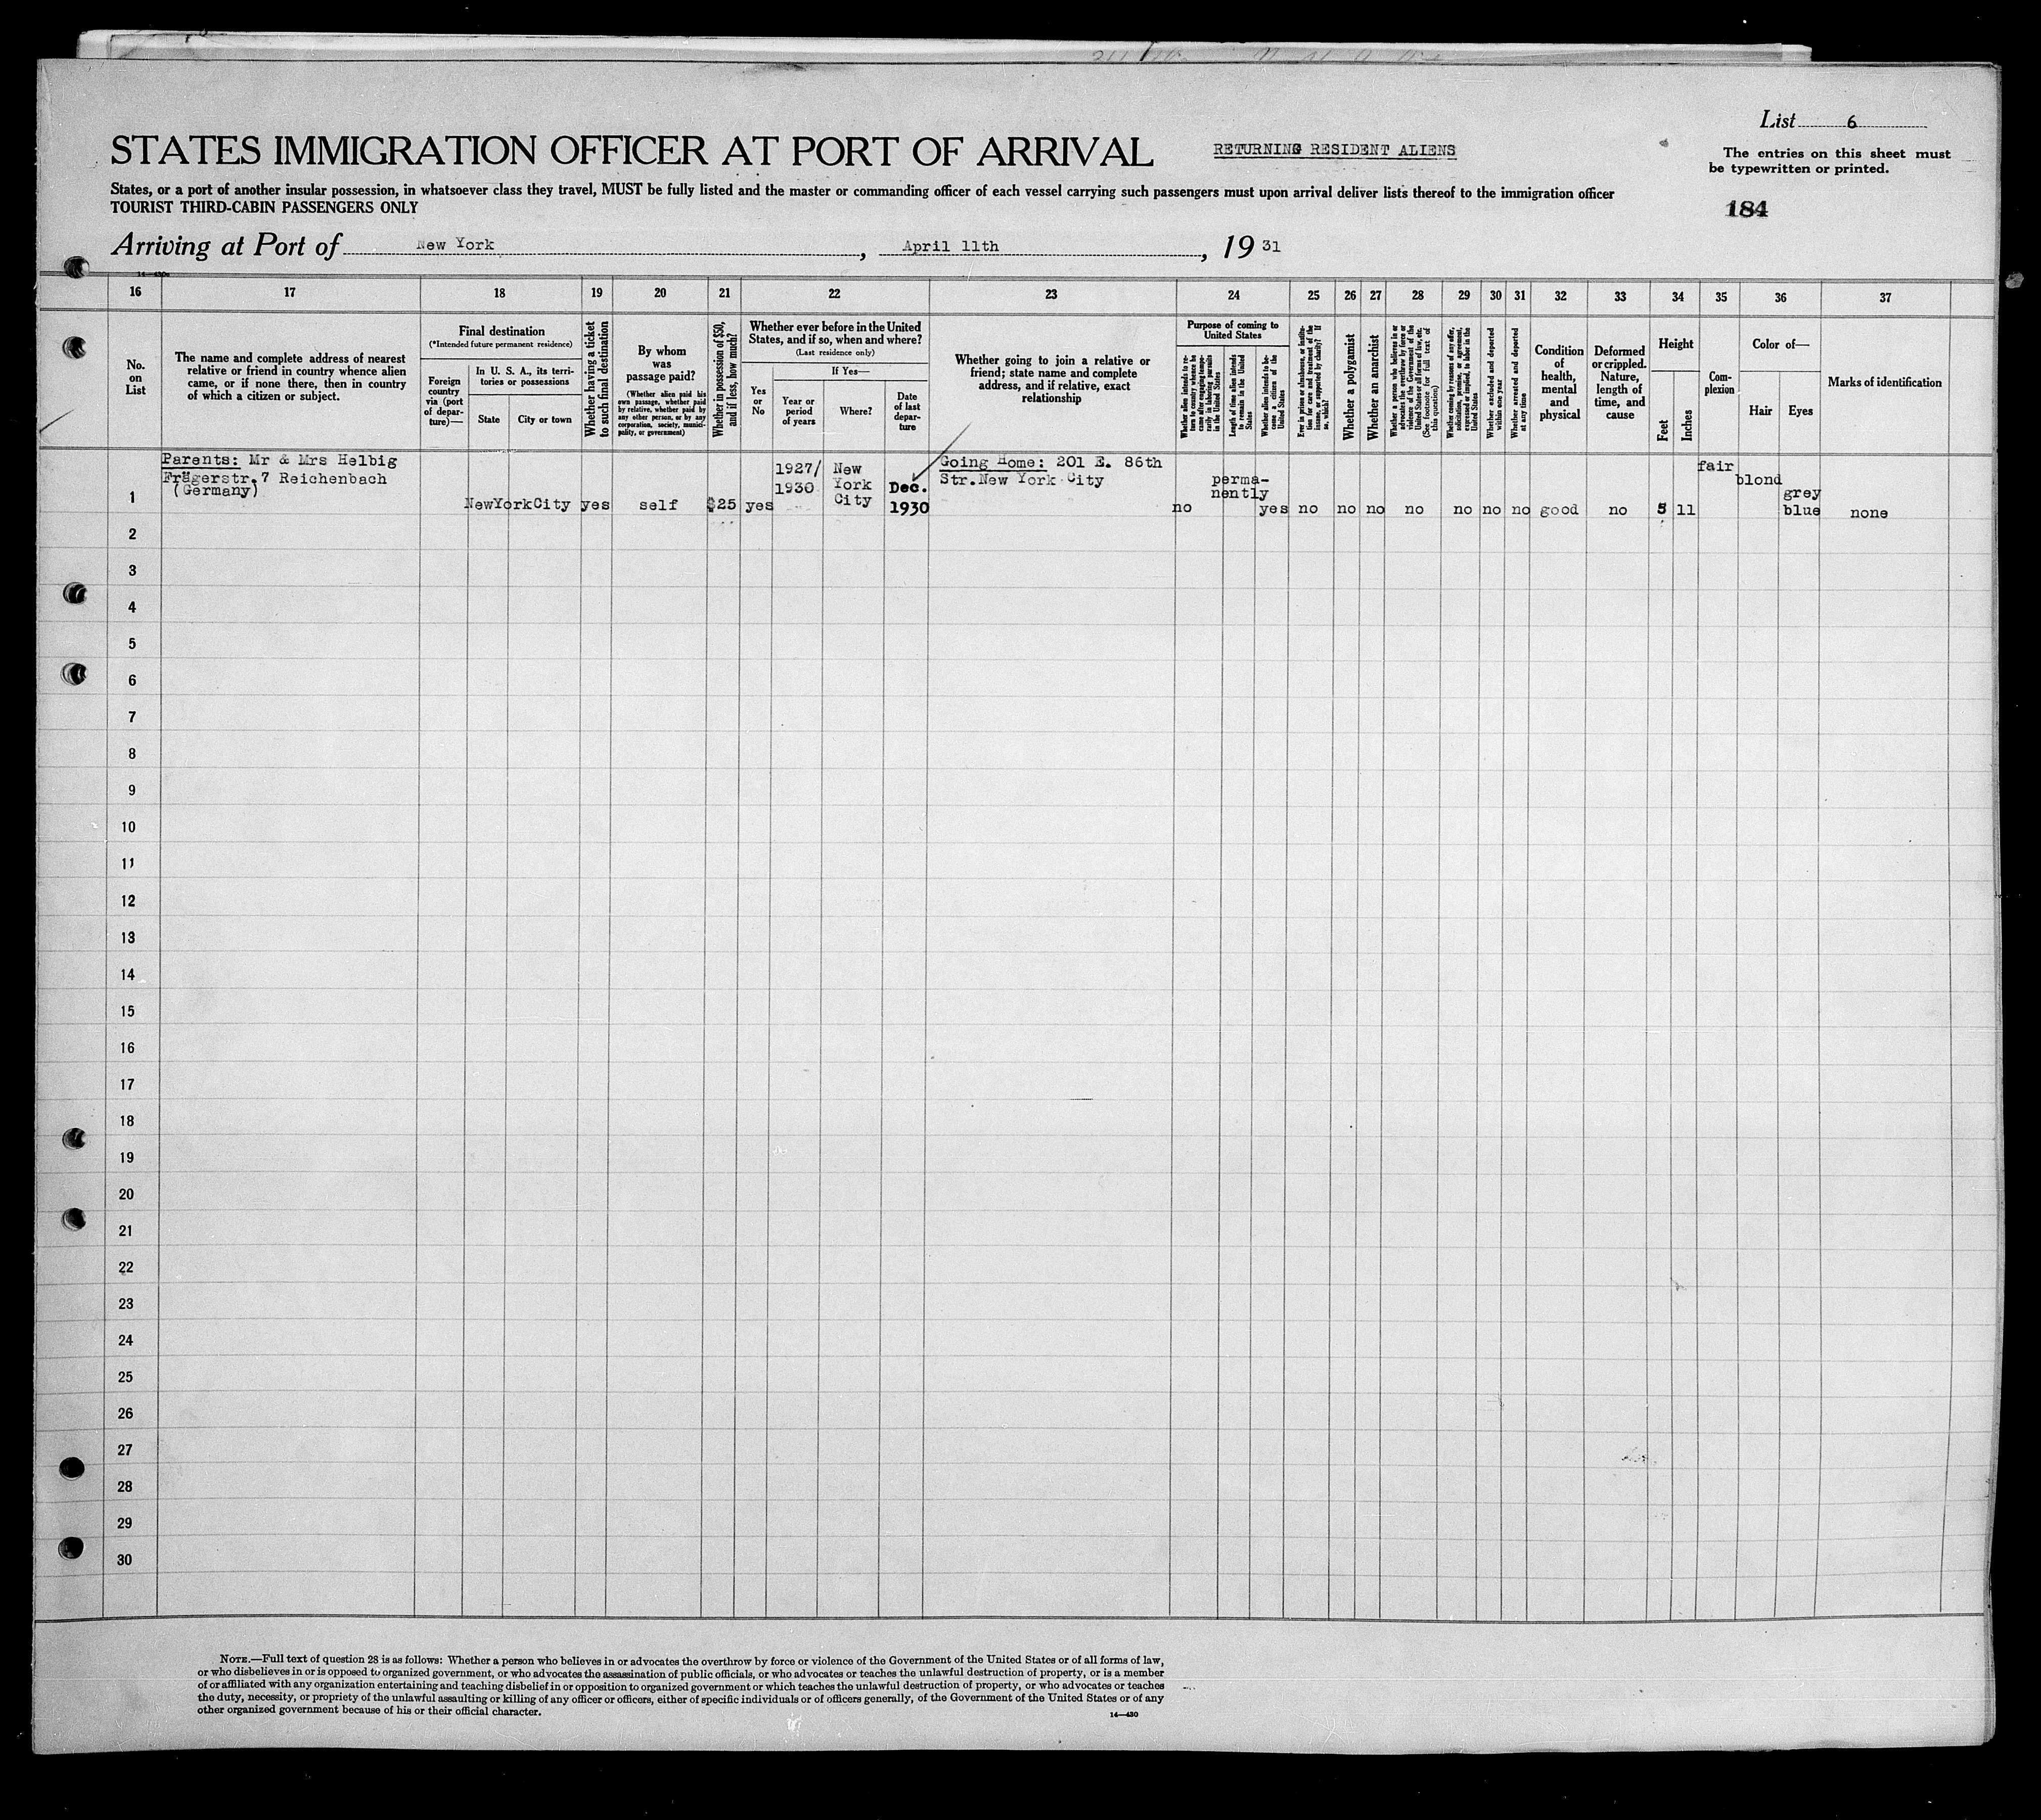 List 6
STATES IMMIGRATION OFFICER AT PORT OF ARRIVAL
RETURNING RESIDENT ALIENS
The entries on this sheet must
be typewritten or printed.
States, or a port of another insular possession, in whatsoever class they travel, MUST be fully listed and the master or commanding officer of each vessel carrying such passengers must upon arrival deliver lists thereof to the immigration officer
TOURIST THIRD-CABIN PASSENGERS ONLY
184
Arriving at Port of New York, April 11th, 1931
14—430a
16 17 18 19 20 21 22 23 24 25 26 27 28 29 30 31 32 33 34 35 36 37
No.
on
List
The name and complete address of nearest
relative or friend in country whence alien
came, or if none there, then in country
of which a citizen or subject.
Final destination
(*Intended future permanent residence)
Foreign
country
via (port
of depar-
ture)—
In U. S. A., its terri-
tories or possessions
State
City or town
Whether having a ticket
to such final destination
By whom
was
passage paid?
(Whether alien paid his
own passage, whether paid
by relative, whether paid by
any other person, or by any
corporation, society, munici-
pality, or government)
Whether in possession of $50,
and if less, how much?
Whether ever before in the United
States, and if so, when and where?
(Last residence only)
Yes
or
No
If Yes—
Year or
period
of years
Where?
Date
of last
depar-
ture
Whether going to join a relative or
friend; state name and complete
address, and if relative, exact
relationship
Purpose of coming to
United States
Whether alien intends to re-
turn to country whence he
came after engaging tempo-
rarily in laboring pursuits
in the United States
Length of time alien intends
to remain in the United
States
Whether alien intends to be-
come a citizen of the
United States
Ever in prison or almshouse, or institu-
tion for care and treatment of the
insane, or supported by charity? If
so, which?
Whether a polygamist
Whether an anarchist
Whether a person who believes in or
advocates the overthrow by force or
violence of the Government of the
United States or all forms of law, etc.
(See footnote for full text of
this question)
Whether coming by reasons of any offer,
solicitation, promise, or agreement,
expressed or implied, to labor in the
United States
Whether excluded and deported
within one year
Whether arrested and deported
at any time
Condition
of
health,
mental
and
physical
Deformed
or crippled.
Nature,
length of
time, and
cause
Height
Feet
Inches
Com-
plexion
Color of—
Hair
Eyes
Marks of identification
Parents: Mr & Mrs Helbig
Frägerstr.7 Reichenbach
(Germany)
1 NewYorkCity yes self $25 yes
1927/
1930
New
York
City
Dec.
1930
Going Home: 201 E. 86th
Str.New York City
no
perma-
nently
yes no no no no no no no good no 5 11
fair
blond
grey
blue
none
2
3
4
5
6
7
8
9
10
11
12
13
14
15
16
17
18
19
20
21
22
23
24
25
26
27
28
29
30
NOTE.—Full text of question 28 is as follows: Whether a person who believes in or advocates the overthrow by force or violence of the Government of the United States or of all forms of law,
or who disbelieves in or is opposed to organized government, or who advocates the assassination of public officials, or who advocates or teaches the unlawful destruction of property, or is a member
of or affiliated with any organization entertaining and teaching disbelief in or opposition to organized government or which teaches the unlawful destruction of property, or who advocates or teaches
the duty, necessity, or propriety of the unlawful assaulting or killing of any officer or officers, either of specific individuals or of officers generally, of the Government of the United States or of any
other organized government because of his or their official character.
14—430